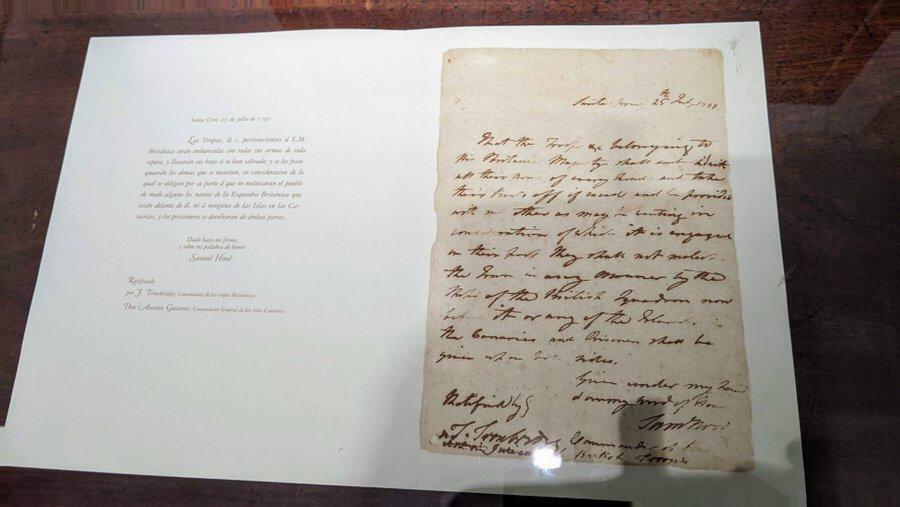 Santa Cruz 25 de julio de 1797
Las Tropas, & c. pertenecientes á S.M.
Británica serán embarcadas con todas sus armas de toda
especie, y llevarán sus botes si se han salvado; y se les fran-
quearán los demas que se necesiten, en consideracion de lo
qual se obligan por su parte á que no molestaran el pueblo
de modo alguno los navíos de la Esquadra Británica que
están delante de él, ni á ninguna de las Islas en las Ca-
narias, y los prisioneros se devolverán de ámbas partes.
Dado baxo mi firma,
y sobre mi palabra de honor
Samuel Hood
Ratificado
por J. Trowbridge, Comandante de las tropas Británicas.
Don Antonio Gutierrez, Comandante General de las Islas Canarias.
Santa Cruz 25th July 1797
That the Troops &c belonging to
his Britanic Majesty shall embark with
all their arms of every kind and take
their Boats off if saved and be provided
with such others as may be wanting in
consideration of which it is engaged
on their part they shall not molest
the Town in any manner by the
Ships of the British Squadron now
before it or any of the Islands in
the Canaries and Prisoners shall be
given up on both sides.
Given under my hand
& on my word of Hon
Saml Hood
Ratified by
T. Troubridge Commander of the
British Troops